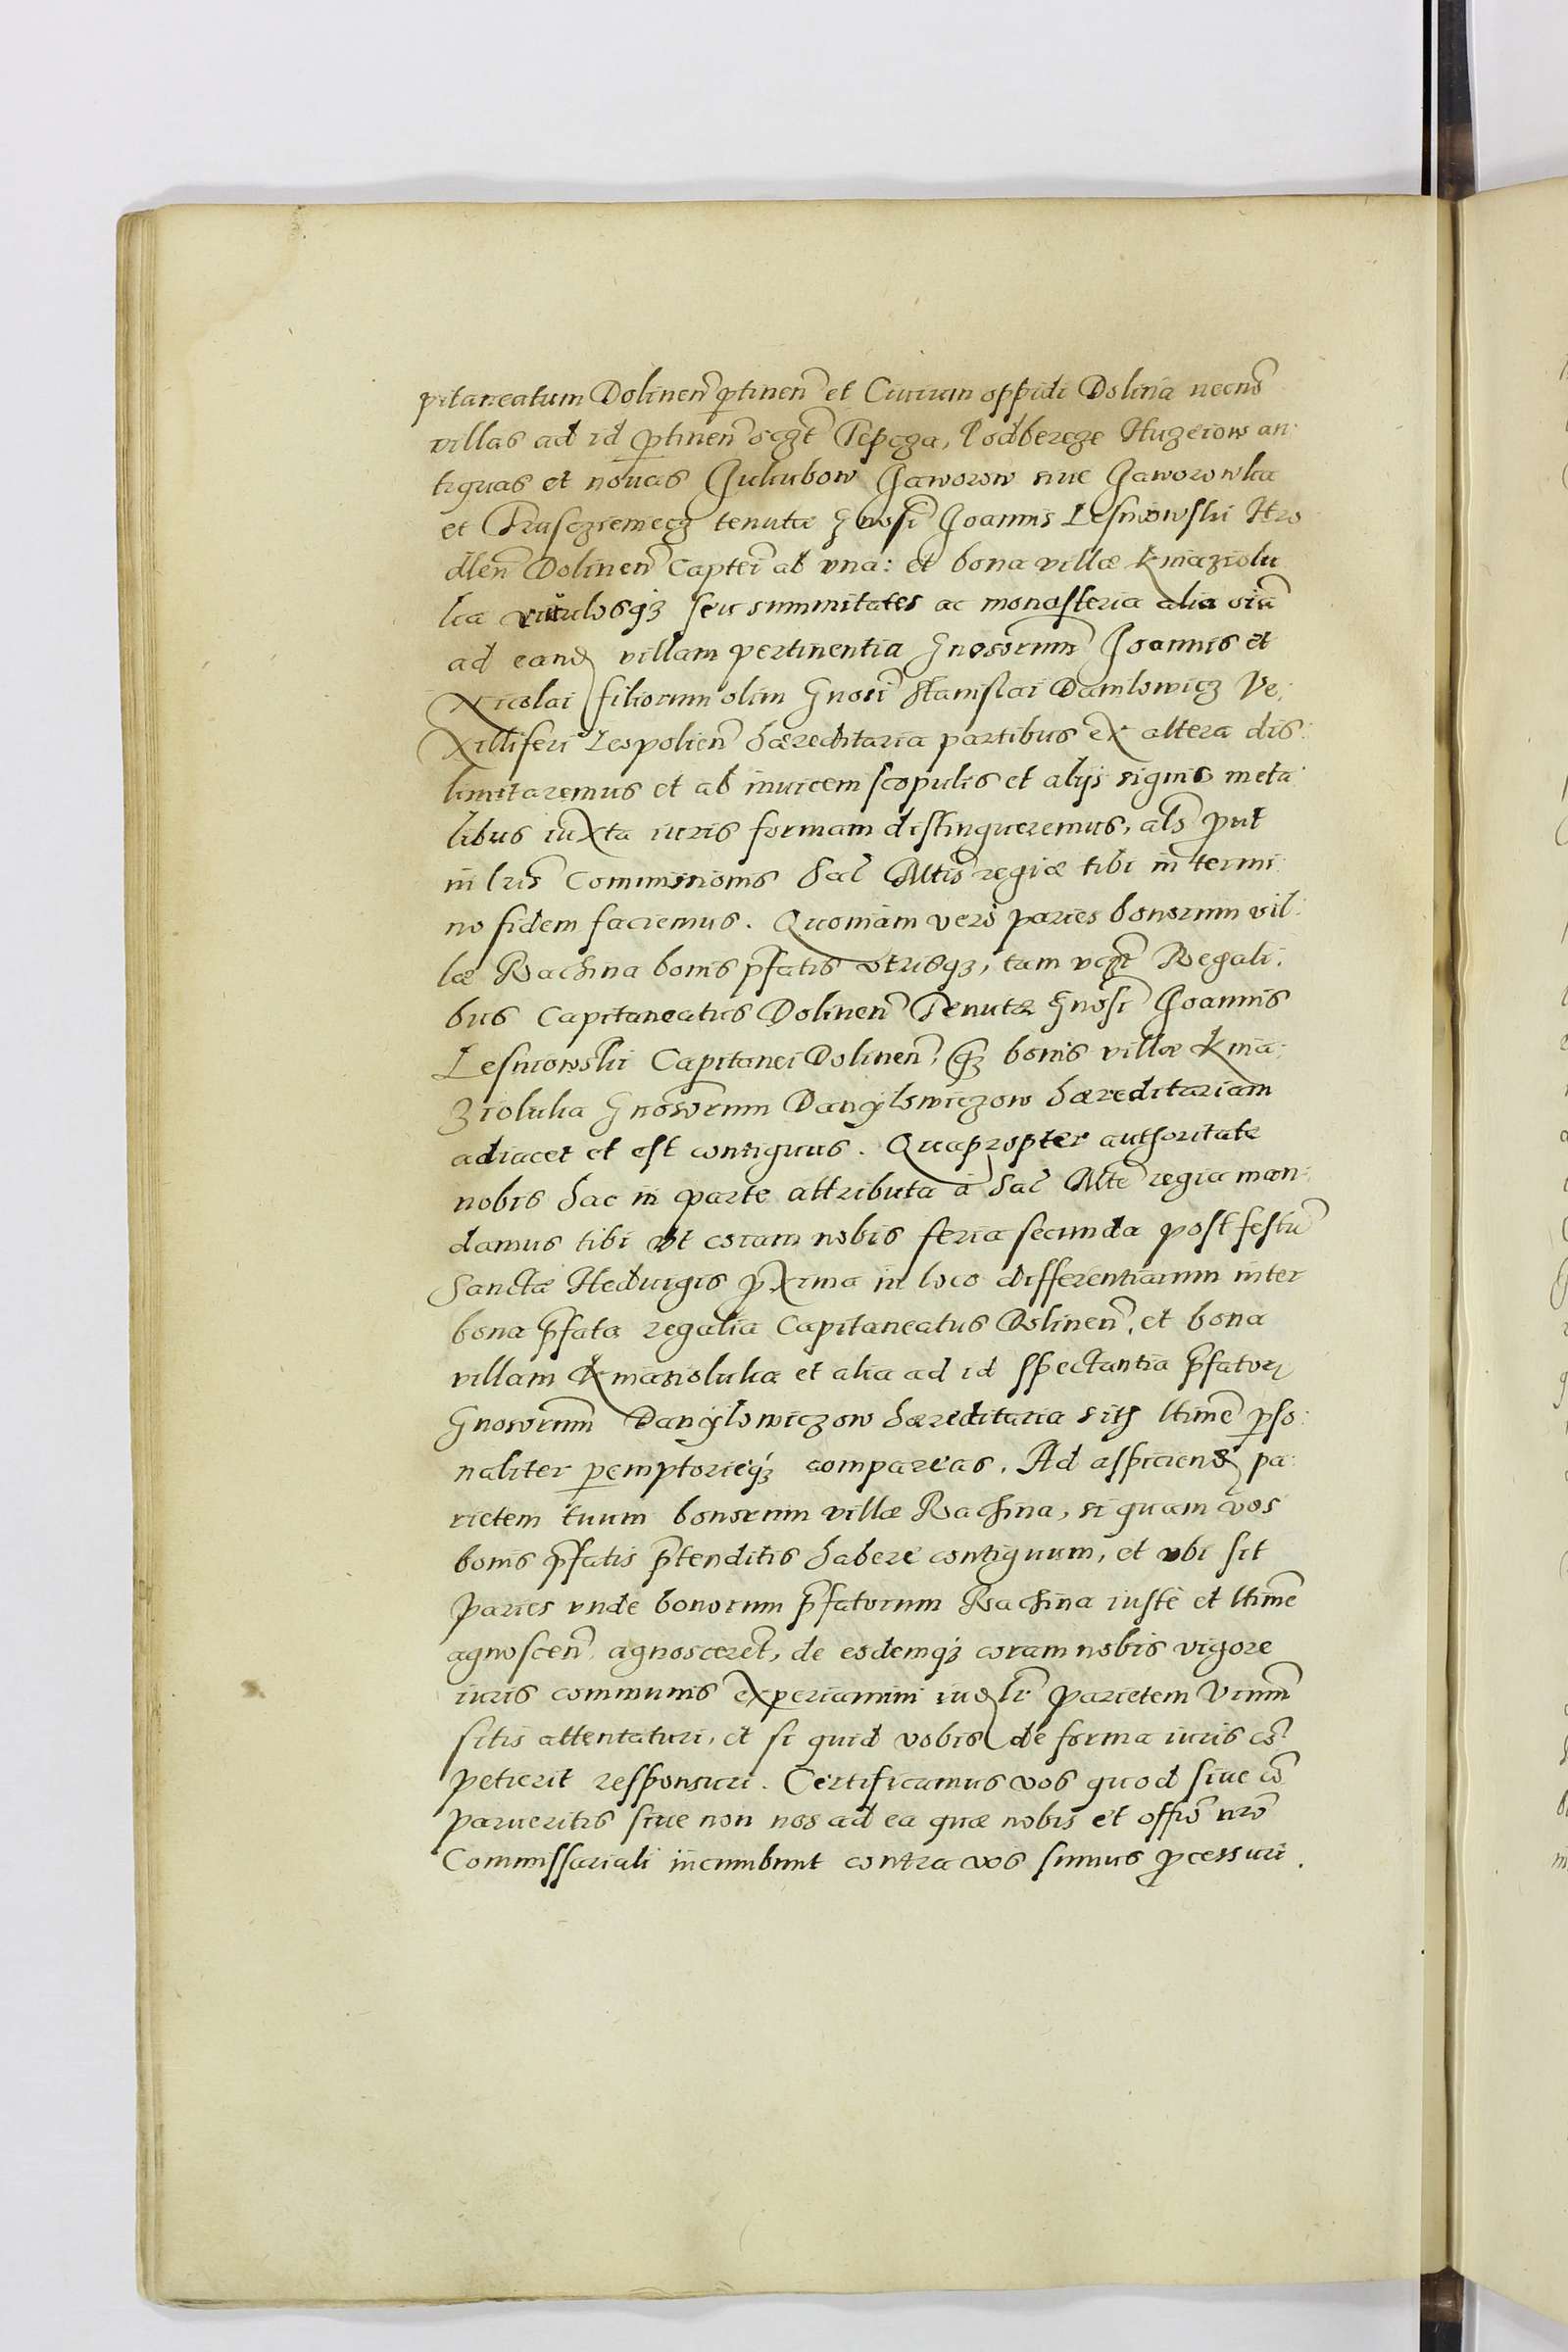 pitaneatum Dolinen ptinen et Ciuium oppidi Dolina necno
villas ad id ptinen sczt Tepcza, Podbereze Huzeiow an
tiquas et nouas Jakubow Jaworow siue Jaworowka
et Trasczieniecz tenutæ Gnosi Joannis Lesniowski Hro
dlen Dolinen Captei ab vna: et bona villæ Kniaziolu
ka seu summitates ac monasteria alia oia
ad eand villam pertinentia Gnosorum Joannis et
Nicolai filiorum olim Gnosi Stanislai Danilowicz Ve:
xilliferi Leopolien hæreditaria partibus ex altera dis:
limitaremus et ab inuicem scopulis et alijs signis meta
libus iuxta iuris formam distingueremus, als put
in lris Commissionis Sac Mtis regiæ tibi in termi
no fidem faciemus. Quoniam vero paries bonorum vil:
læ Rachina bonis pfatis vtrisqz, tam vczt Regali:
bus Capitaneatus Dolinen Tenutæ Gnosi Joannis
Lesniowski Capitanei Dolinen, qz bonis villæ Knia:
zioluka Gnosorum Danyłowiczow hæreditariam
adiacet et est contiguus. Quapropter authoritate
nobis hac in parte attributa à Sac Mte regia man:
damus tibi vt coram nobis feria secunda post festu
Sanctæ Heduigis pxima in loco differentiarum inter
bona pfata regalia Capitaneatus Dolinen, et bona
villam Kniasioluka et alia ad id spectantia pfator
Gnosorum Danyłowiczow hæreditaria sits ltime pso:
naliter pemptorieqz compareas. Ad aspiciend pa:
rietem tuum bonorum villæ Rachina, si quam vos
bonis pfatis ptenditis habere contiguum, et vbi sit
paries vnde bonorum pfatorum Rachina iustè et ltime
agnoscen, agnosceret, de eodemqz coram nobis vigore
iuris communis experiamini parietem
sitis attentaturi, et si quid vobis de forma iuris co
petierit responsuri. Certificamus vos quod siue co
parueritis siue non nos ad ea quæ nobis et offio nro
Commissariali incumbunt contra vos sumus pcessuri.